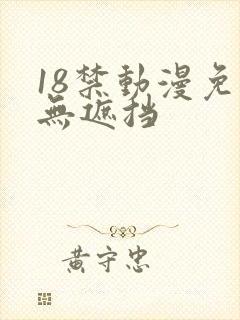 18禁動漫免
無遮挡
黄守忠